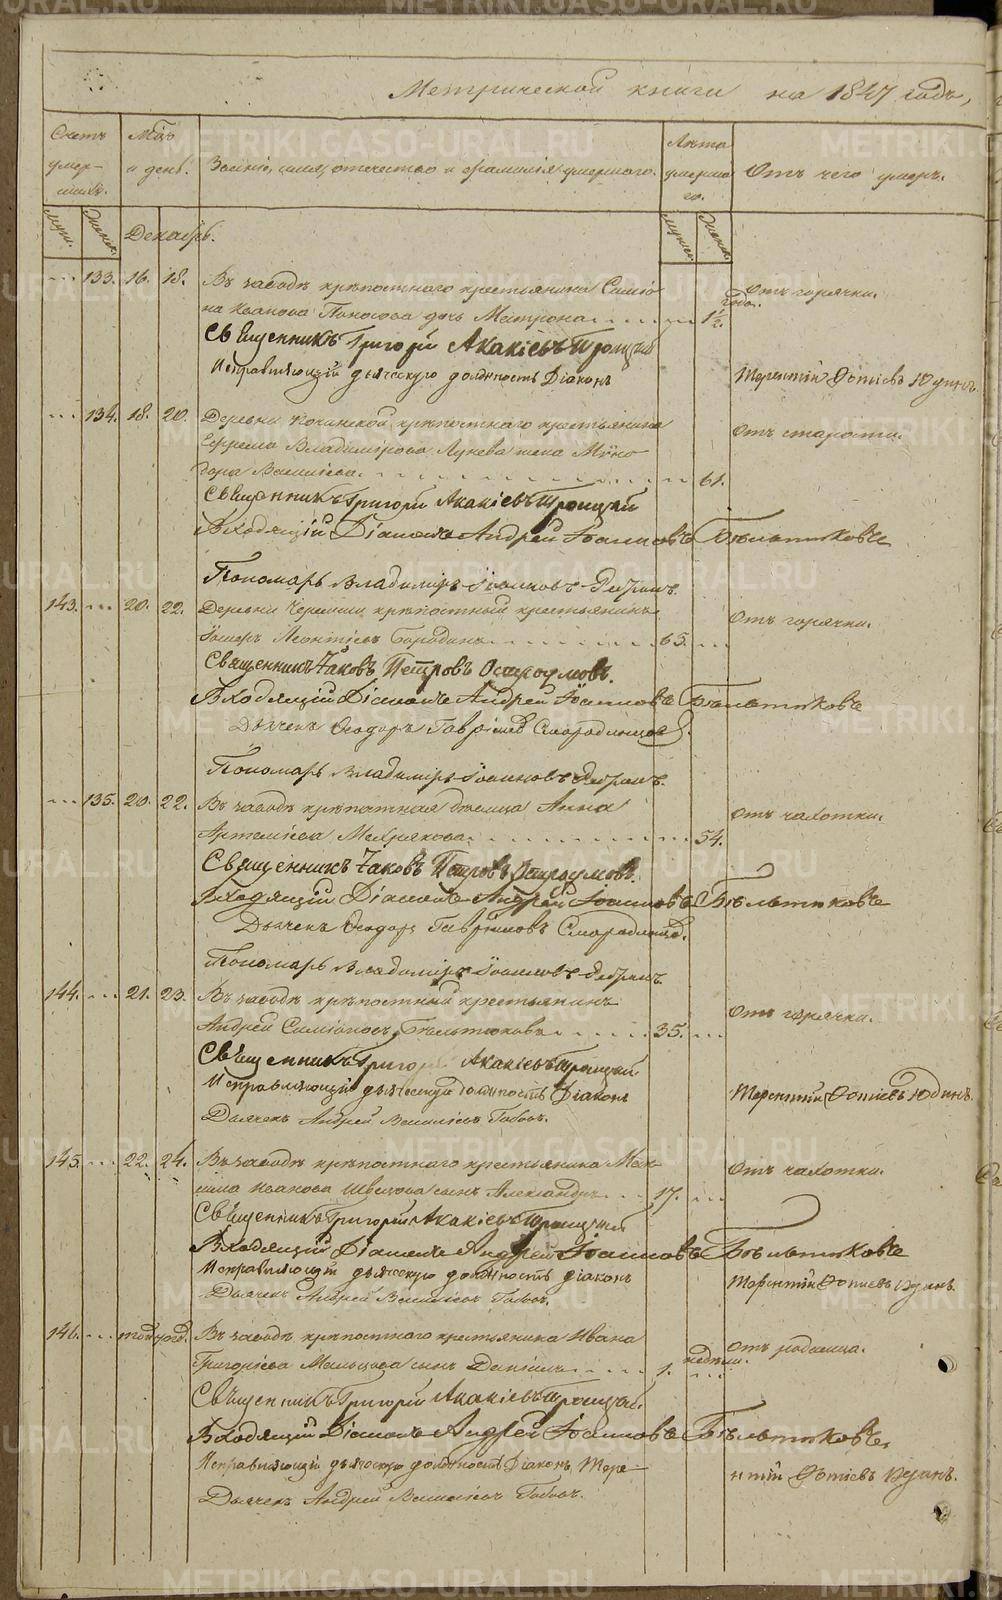 Метрической книги на 1847 годъ,
Счетъ умер-шихъ. Мѣс: и день. Званіе, имя, отечество и фамилія умершаго. Лѣта умершаго. Отъ чего умеръ.
Муж. Женск. Муж. Женск.
Декабрь.
... 133. 16. 18. Въ заводѣ крѣпостнаго крестьянина Симіо- Отъ горячки.
на Иванова дочь Матрона . . . . . 1½. года.
Священникъ Григорій Акакіевъ Троицкій
Исправляющій дьяческую должность Діаконъ Терентій Фотіевъ Юдинъ.
... 134. 18. 20. Деревни крѣпостнаго крестьянина Отъ старости.
Ефрема Владимірова Лунева жена Мино-
дора Васильева . . . . . 61.
Священникъ Григорій Акакіевъ Троицкій
Входящій Діаконъ Андрей Іоанновъ Бѣльтюковъ
Пономарь Владиміръ Іоанновъ
143. ... 20. 22. Деревни Черемши крѣпостный крестьянинъ Отъ горячки.
Леонтіевъ Бородинъ . . . . . 65. ...
Священникъ Іаковъ Петровъ Остроумовъ.
Входящій Діаконъ Андрей Іоанновъ Бѣльтюковъ
Дьячекъ Ѳеодоръ Гавріиловъ Смородинцовъ.
Пономарь Владиміръ Іоанновъ
... 135. 20. 22. Въ заводѣ крѣпостная дѣвица Анна Отъ чахотки.
Артеміева Мехрякова . . . . . 54.
Священникъ Іаковъ Петровъ Остроумовъ.
Входящій Діаконъ Андрей Іоанновъ Бѣльтюковъ
Дьячекъ Ѳеодоръ Гавріиловъ
Пономарь Владиміръ Іоанновъ
144. ... 21. 23. Въ заводѣ крѣпостный крестьянинъ Отъ горячки.
Андрей Симіоновъ Бѣльтюковъ . . . . . 35. ...
Священникъ Григорій Акакіевъ Троицкій
Исправляющій дьяческую должность Діаконъ Терентій Фотіевъ Юдинъ.
Дьячекъ Андрей Васильевъ
145. ... 22. 24. Въ заводѣ крѣпостнаго крестьянина Мак- Отъ чахотки.
сима Иванова Швецова сынъ Александръ . . . 17. ...
Священникъ Григорій Акакіевъ Троицкій
Входящій Діаконъ Андрей Іоанновъ Бѣльтюковъ
Исправляющій дьяческую должность Діаконъ Терентій Фотіевъ Юдинъ.
Дьячекъ Андрей Васильевъ
146. ... Въ заводѣ крѣпостнаго крестьянина Ивана Отъ родимца.
Григоріева Мальцова сынъ Даніилъ . . . . 1. недѣли. ...
Священникъ Григорій Акакіевъ Троицкій.
Входящій Діаконъ Андрей Іоанновъ Бѣльтюковъ.
Исправляющій дьяческую должность Діаконъ Тере- нтій Фотіевъ Юдинъ.
Дьячекъ Андрей Васильевъ
METRIKI.GASO-URAL.RU